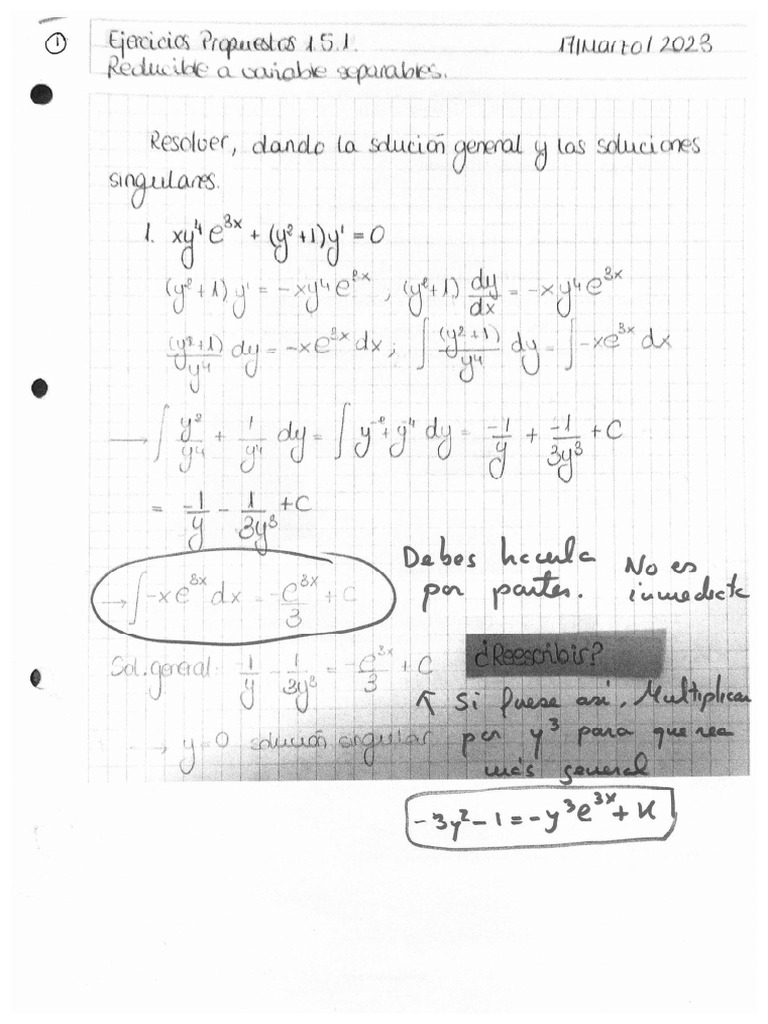 1 Ejercicios Propuestos 1.5.1. 17/Marzo/2023
Reducible a variable separables.
Resolver, dando la solución general y las soluciones
singulares.
1. xy⁴e³ˣ + (y²+1)y' = 0
(y²+1) y' = -xy⁴e³ˣ , (y²+1) dy/dx = -xy⁴e³ˣ
(y²+1)/y⁴ dy = -xe³ˣ dx; ∫ (y²+1)/y⁴ dy = ∫ -xe³ˣ dx
→ ∫ y²/y⁴ + 1/y⁴ dy = ∫ y⁻² + y⁻⁴ dy = -1/y + -1/3y³ + C
= -1/y - 1/3y³ + C
→ ∫ -xe³ˣ dx = -e³ˣ/3 + C
Debes hacerla
por partes.
No es
inmediata
Sol. general: 1/y - 1/3y³ = -e³ˣ/3 + C
¿Reescribir?
↖ Si fuese así, Multiplicar
por y³ para que sea
más general
→ y=0 solución singular
-3y²-1 = -y³e³ˣ + K